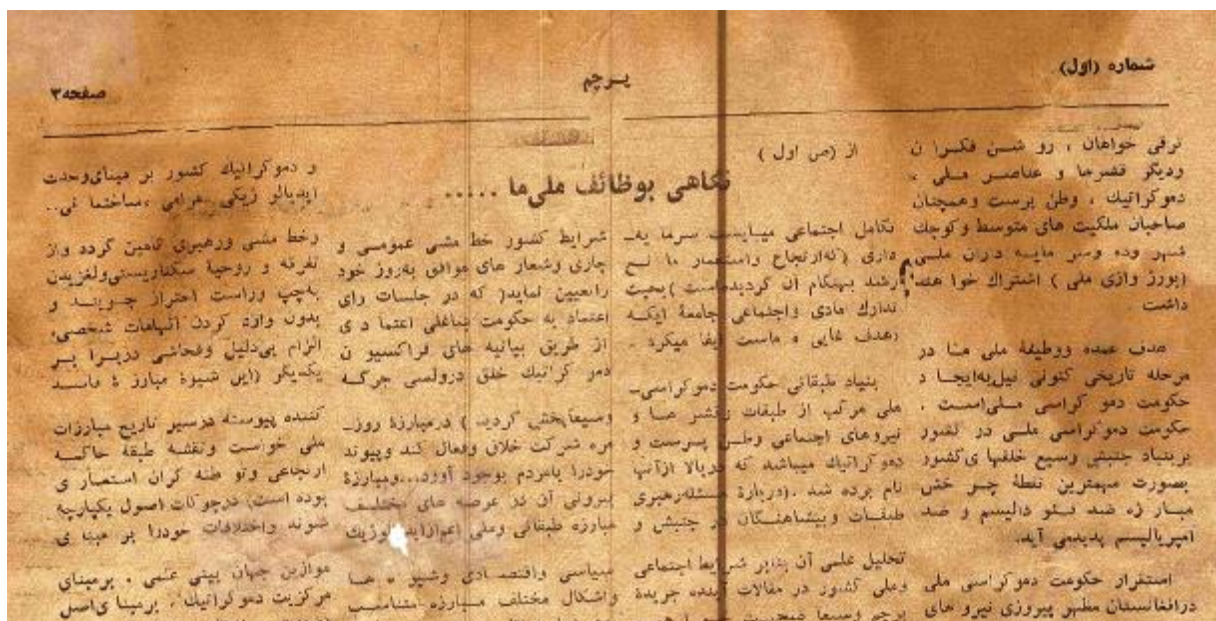 شماره (اول)
پرچم
صفحه ۳
ترقی خواهان ، رو شـن فکـرا ن
ودیگر قشرها و عناصـر مـلی ،
دموکراتیك ، وطن پرست وهمچنان
صاحبان ملکیت های متوسط وکوچك
شهر وده وسر مایـه داران ملـی
(بورژ وازی ملی ) اشتراك خوا هند
داشت
هدف عمده ووظیفۀ ملی مـا در
مرحله تاریخی کنونی نیل به ایجـا د
حکومت دمو کراسی مـلی اسـت .
حکومت دموکراسی ملـی در کشور
بربنیاد جنبش وسیع خلقها ی کشور
بصورت مهمترین نقطۀ چـر خش
مبـار زه ضد فـئو دالیسم و ضد
امپریالیسم پدیدمی آید.
استقرار حکومت دموکراسی ملی
درافغانستان مظهر پیروزی نیرو های
از (ص اول )
نگاهی بوظائف ملی ما .....
تکامل اجتماعی میبایست سرما یه‌ـ
داری (که ارتجاع واستعمار ما نـع
رشد بهنگام آن گردیده است )بحیث
تدارك مادی واجتماعی جامعۀ ایکـه
(هدف غایی ه ماست ایفا میکرد .
بنیاد طبقاتی حکومت دموکراسی‌ـ
ملی مرکب از طبقات وقشر هـا و
نیروهای اجتماعی وطـن پـرست و
دموکراتیك میباشد که دربالا ازآنها
نام برده شد .(دربارۀ مسئله رهبری
طبقـات وپیشاهنـگان در جنبش و
تحلیل علمی آن بنابر شرایط اجتماعی
وملی کشور در مقالات آینده جریدۀ
پرچم وسیعا
شرایط کشور خط مشی عمومـی و
جاری وشعار های موافق به‌روز خود
راتعیین نماید( که در جلسات رای
اعتماد به حکومت ښاغلی اعتما د ی
از طریق بیانیه های فراکسیو ن
دمو کراتیك خلق درولسی جرگـه
وسیعاپخش گردید ) درمبارزۀ روزـ
مره شرکت خلاق وفعال کند وپیوند
خودرا بامردم بوجود آورد...ومبارزۀ
بیرونی آن در عرصه های مختلـف
مبارزه طبقاتی وملی اعم ازایدیولوژیك
سیاسی واقتصـادی وشیو ه هـا
واشکال مختلف مبـارزه متناسب
و دموکراتیك کشور بر مبنای وحدت
ایدیالو ژیکی ،مرامی ،ساختما نی..
وخط مشی ورهبری تامین گردد واز
تفرقه و روحیۀ سکتاریستی ولغزیدن
به‌چپ وراست احتراز جـوینـد و
بدون وارد کردن اتهامات شخصی،
الزام بی‌دلیل وفحاشی دریرا بـر
یکدیگر (این شیوۀ مبارز ۀ فاسـد
کننده پیوسته درسیر تاریخ مبارزات
ملی خواست ونقشه طبقۀ حاکمـه
ارتجاعی وتو طئه گران استعمار ی
بوده است) درچوکات اصول یکپارچه
شوند واختلافات خودرا بر مبنا ی
موازین جهان بینی علمی ، برمبنای
مرکزیت دموکراتیك ، برمبنا ی اصل